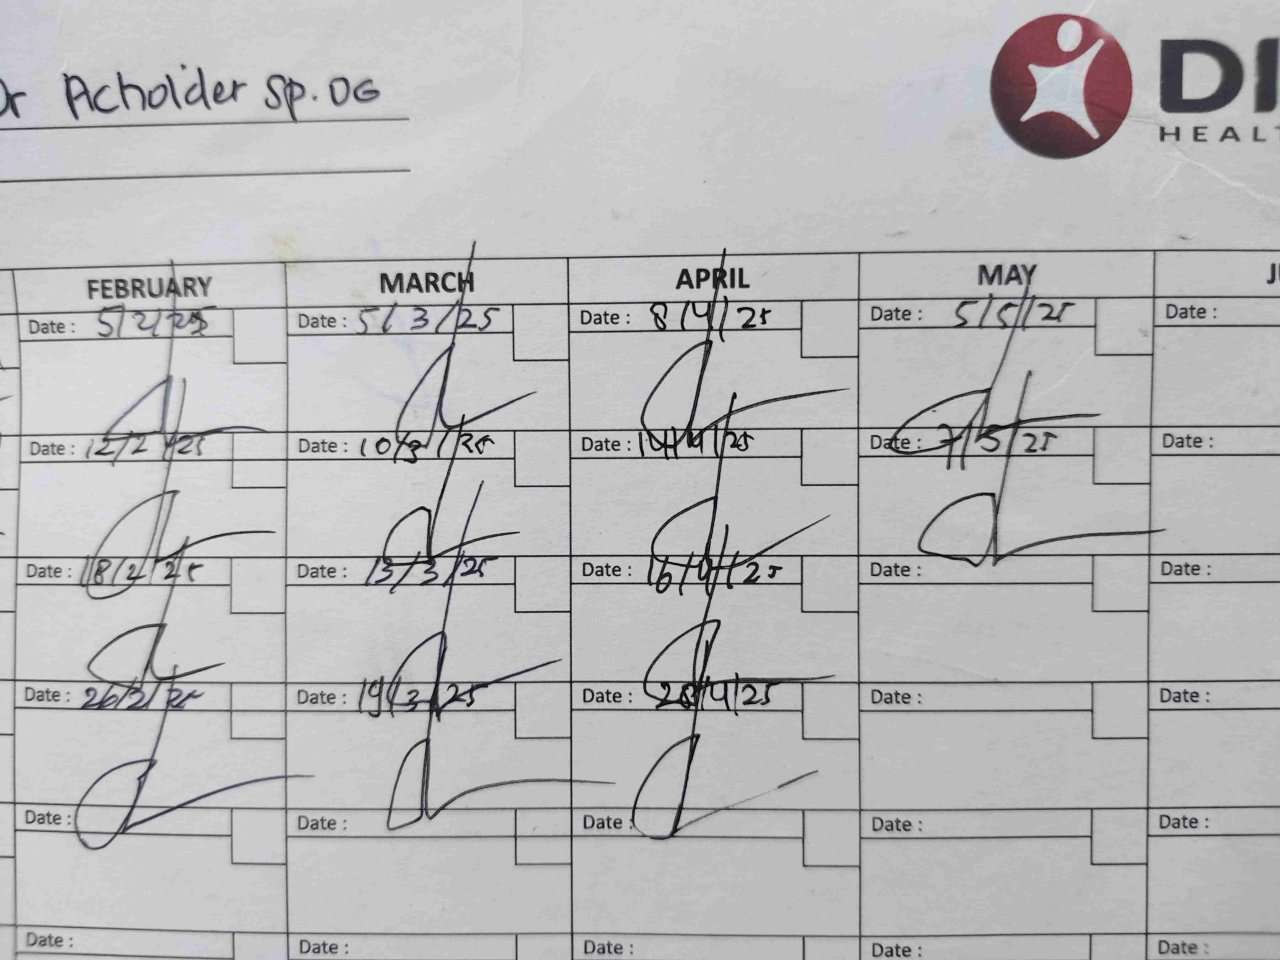 Dr Acholder Sp.OG
DI
HEALT
FEBRUARY MARCH APRIL MAY J
Date : 5/2/25 Date : 5/3/25 Date : 8/4/25 Date : 5/5/25 Date :
Date : 12/2/25 Date : 10/3/25 Date : 14/4/25 Date : 7/5/25 Date :
Date : 18/2/25 Date : 13/3/25 Date : 16/4/25 Date : Date :
Date : 26/2/25 Date : 19/3/25 Date : 28/4/25 Date : Date :
Date : Date : Date : Date : Date :
Date : Date : Date : Date : Date :